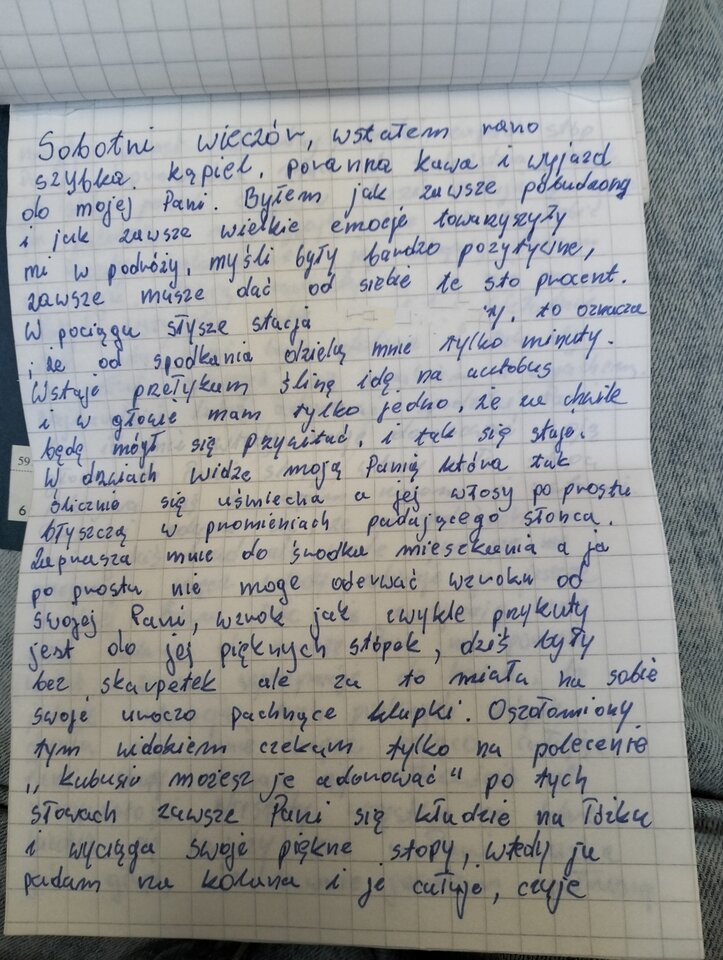 Sobotni wieczór, wstałem rano
szybka kąpiel, poranna kawa i wyjazd
do mojej Pani. Byłem jak zawsze pobudzony
i jak zawsze wielkie emocje towarzyszyły
mi w podróży, myśli były bardzo pozytywne,
zawsze musze dać od siebie te sto procent.
W pociągu słysze stacja y, to oznacza
, że od spodkania dzielą mnie tylko minuty.
Wstaje przełykam ślinę idę na autobus
i w głowie mam tylko jedno, że za chwile
będę mógł się przywitać, i tak się staje.
W dzwiach widze moją Panią która tak
ślicznie się uśmiecha a jej włosy po prostu
błyszczą w promieniach padającego słońca.
Zaprasza mnie do środka mieszkania a ja
po prostu nie moge oderwać wzroku od
swojej Pani, wzrok jak zwykle przykuty
jest do jej pięknych stópek, dziś były
bez skarpetek ale za to miała na sobie
swoje uroczo pachnące klapki. Oszołomiony
tym widokiem czekam tylko na polecenie
„Kubusiu możesz je adorować" po tych
słowach zawsze Pani się kładzie na łóżku
i wyciąga swoje piękne stopy, wtedy ja
padam na kolana i je całuje, czuje
59
6